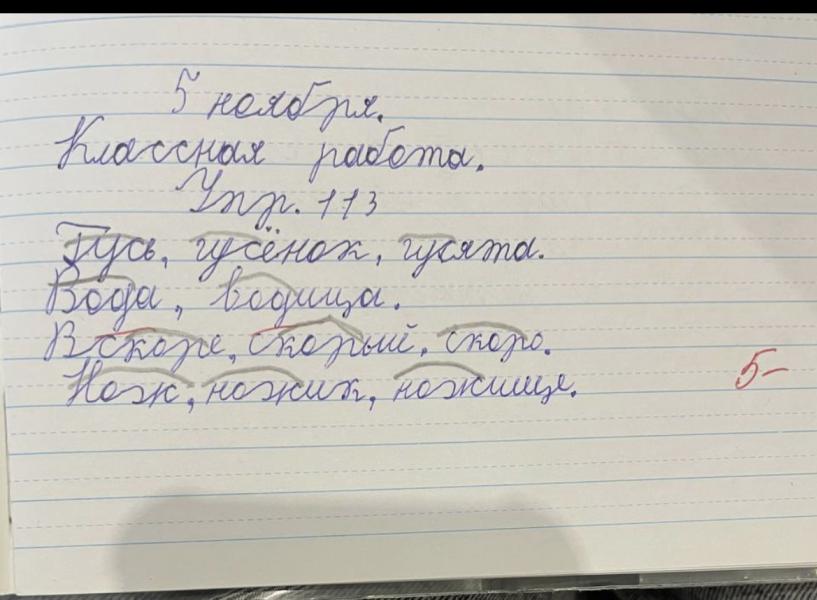 5 ноября.
Классная работа.
Упр. 113
Гусь, гусёнок, гусята.
Вода, водица.
Вскоре, скорый, скоро.
Нож, ножик, ножище.
5-